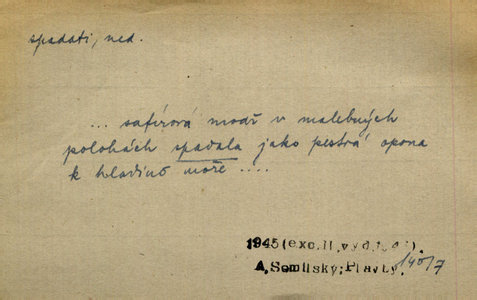 spadati, ned.
... safírová modř v malebných
polohách spadala jako pestrá opona
k hladině moře ....
1945 (exc. II. vyd.
A. Semilský: Plavby, 140/7